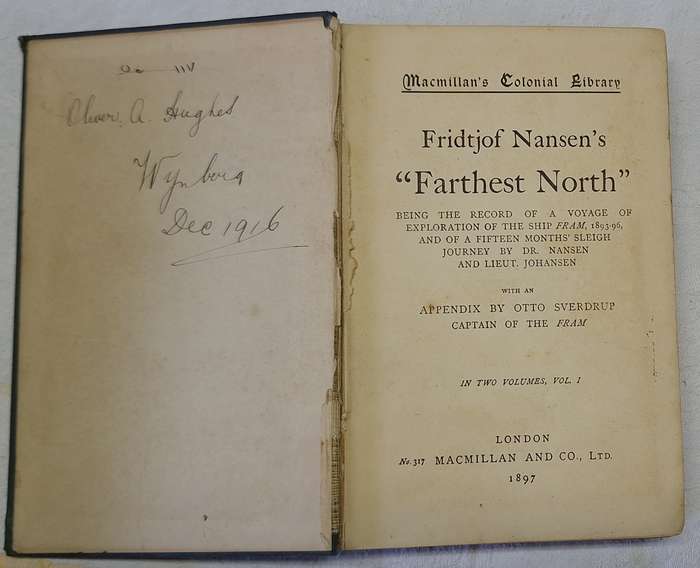 Oliver. A. Hughes
Wynberg
Dec 1916
Macmillan's Colonial Library
Fridtjof Nansen's
"Farthest North"
BEING THE RECORD OF A VOYAGE OF
EXPLORATION OF THE SHIP FRAM, 1893-96,
AND OF A FIFTEEN MONTHS' SLEIGH
JOURNEY BY DR. NANSEN
AND LIEUT. JOHANSEN
WITH AN
APPENDIX BY OTTO SVERDRUP
CAPTAIN OF THE FRAM
IN TWO VOLUMES, VOL. I
LONDON
No. 317 MACMILLAN AND CO., LTD.
1897